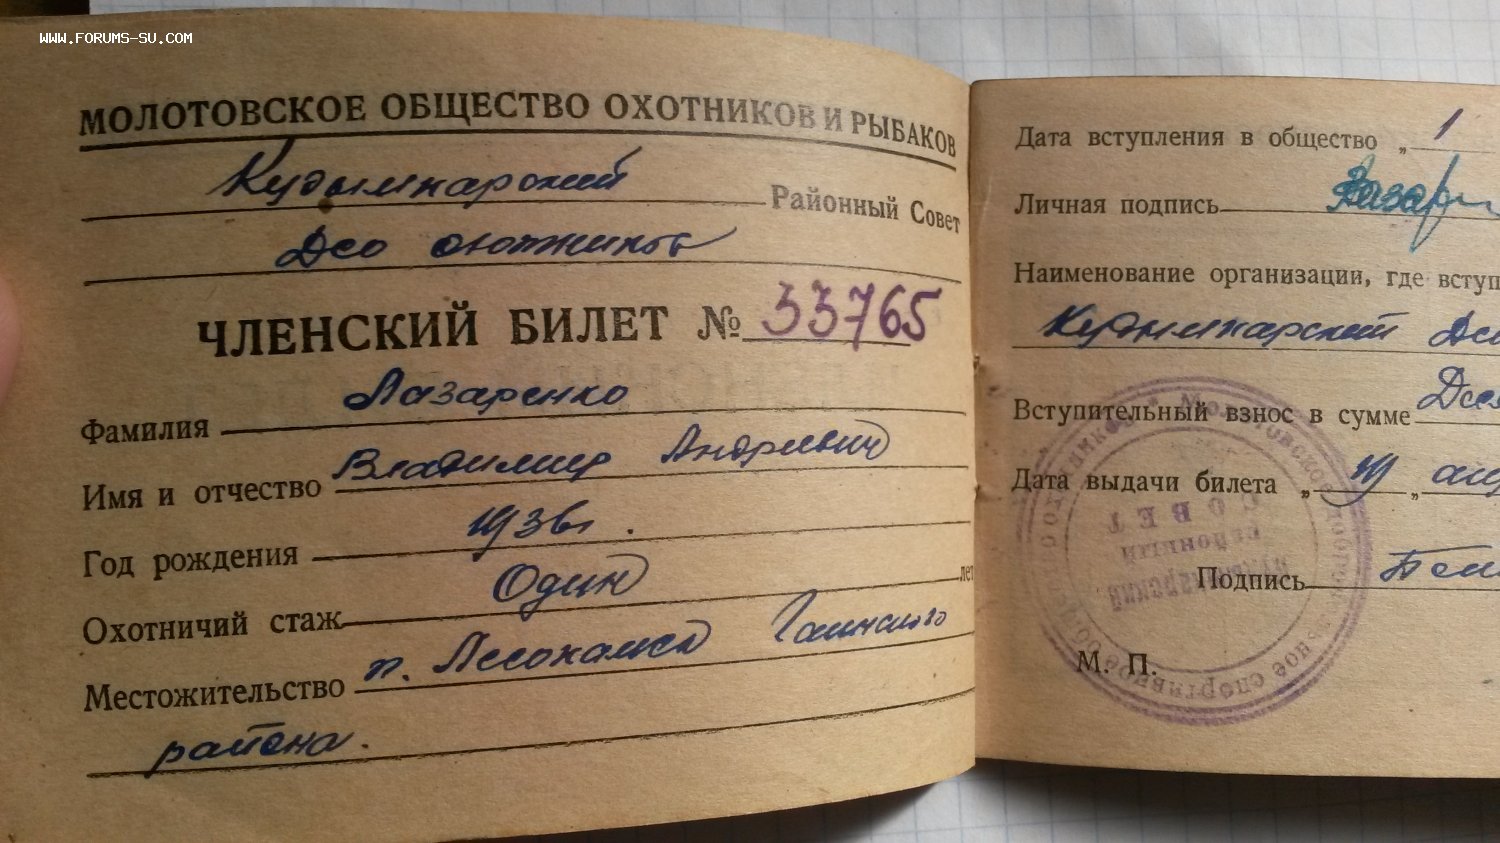 WWW.FORUMS-SU.COM
МОЛОТОВСКОЕ ОБЩЕСТВО ОХОТНИКОВ И РЫБАКОВ
Кудымкарский Районный Совет
Дсо охотников
ЧЛЕНСКИЙ БИЛЕТ № 33765
Фамилия Лазаренко
Имя и отчество Владимир Андреевич
Год рождения 1936г.
Охотничий стаж Один лет
Местожительство п. Лесокамск Гаинского
района.
Дата вступления в общество „ 1
Личная подпись Лазар
Наименование организации, где вступ
Кудымкарский Дсо
Вступительный взнос в сумме
Дата выдачи билета „ 19 „
Подпись
М. П.